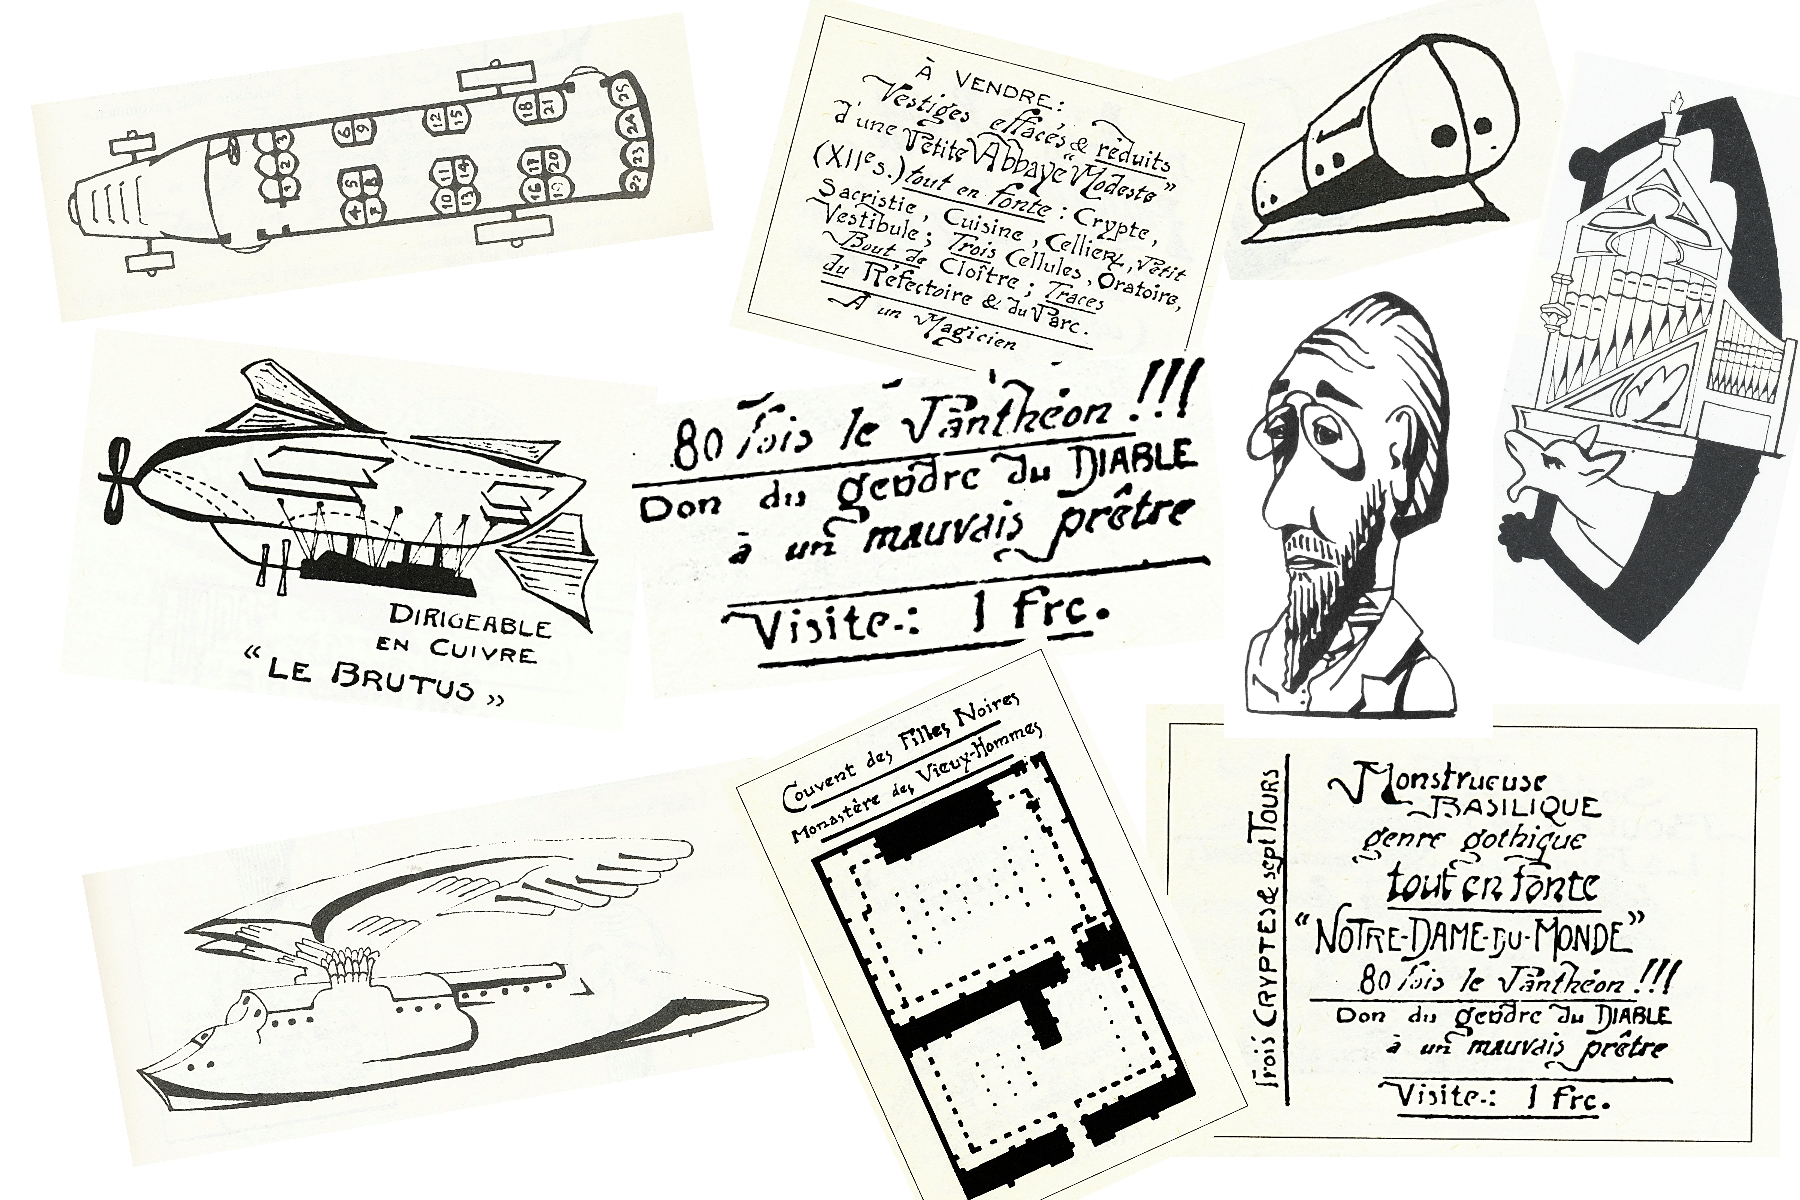 3
2
1
6 9
5 8
4 7
12 15
11 14
10 13
18 21
17 20
16 19
25
24
23
22
À VENDRE:
Vestiges effacés & réduits
d'une Petite Abbaye "Modeste"
(XIIe s.) tout en fonte : Crypte,
Sacristie, Cuisine, Cellier, Petit
Vestibule; Trois Cellules, Oratoire,
Bout de Cloître; Traces
du Réfectoire & du Parc.
A un Magicien
80 fois le Panthéon!!!
Don du gendre du DIABLE
à un mauvais prêtre
Visite.: 1 Frc.
DIRIGEABLE
EN CUIVRE
“LE BRUTUS »
Couvent des Filles Noires
Monastère des Vieux-Hommes
Trois CRYPTES & sept TOURS
Monstrueuse
BASILIQUE
genre gothique
tout en fonte
“NOTRE-DAME-DU-MONDE”
80 fois le Panthéon!!!
Don du gendre du DIABLE
à un mauvais prêtre
Visite.: 1 Frc.